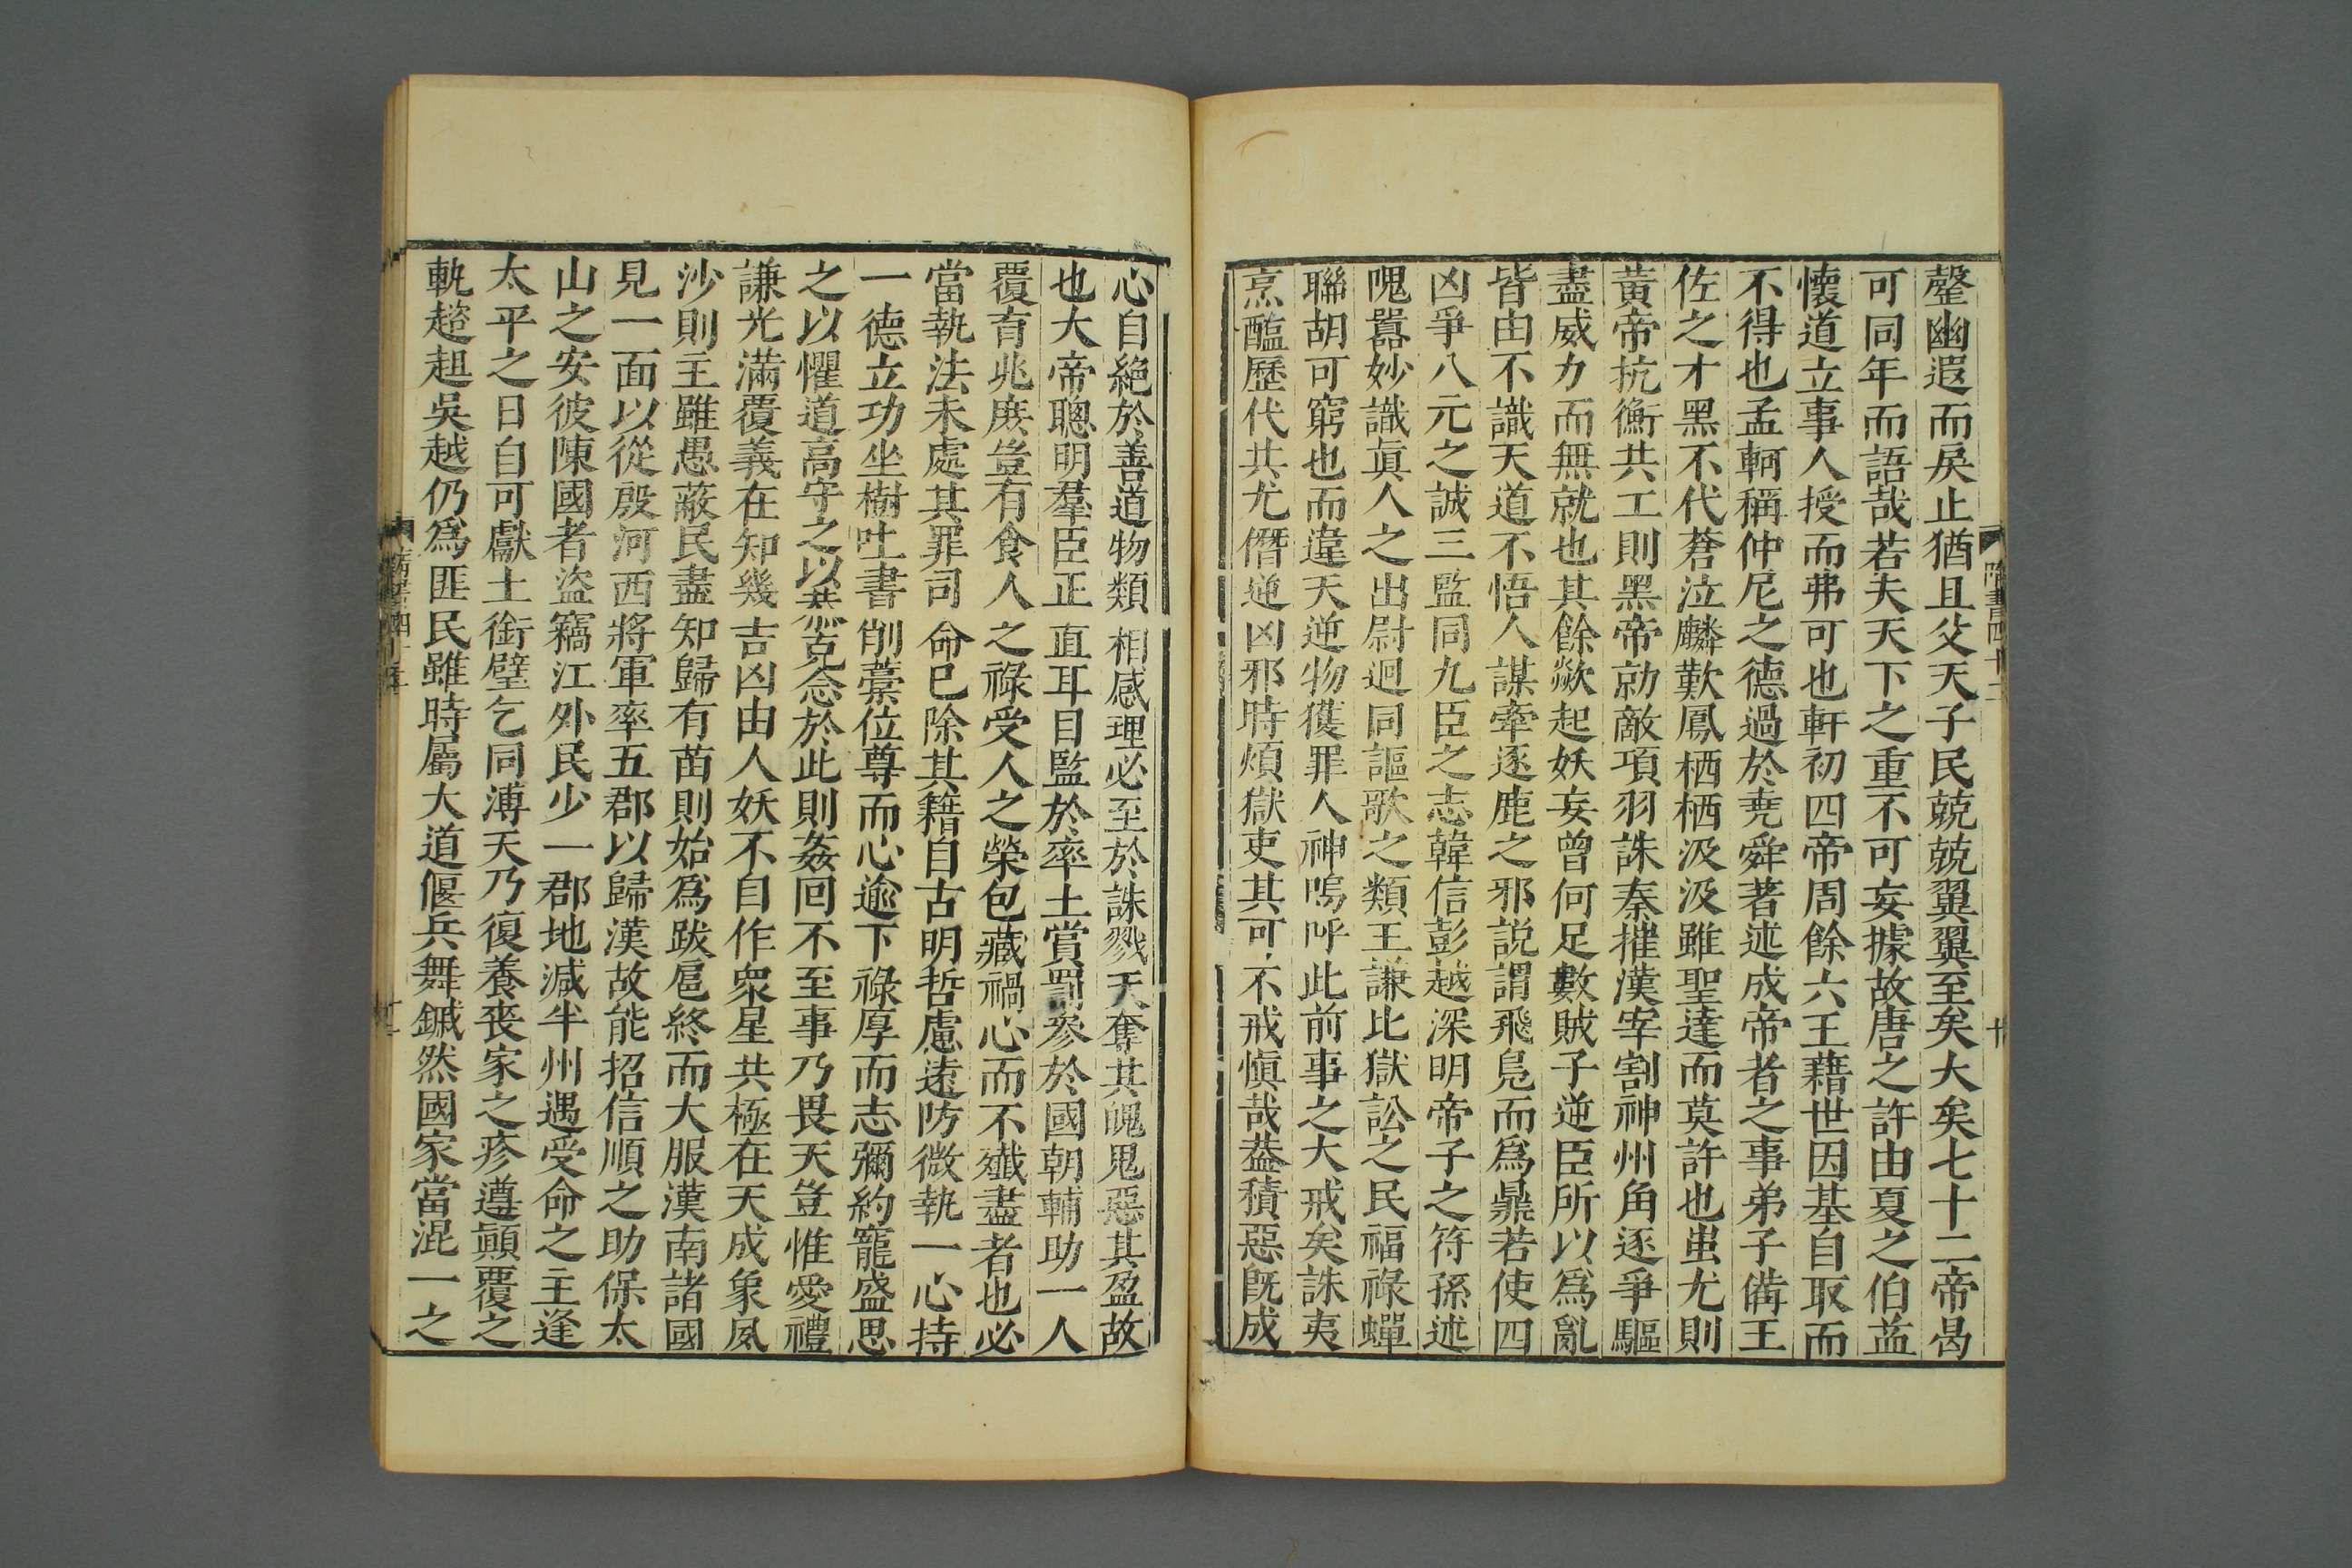 罄幽遐而戾止猶且父天子民兢兢翼翼至矣大矣七十二帝曷
可同年而語哉若夫天下之重不可妄據故唐之許由夏之伯益
懷道立事人授而弗可也軒初四帝周餘六王藉世因基自取而
不得也孟軻稱仲尼之德過於堯舜著述成帝者之事弟子備王
佐之才黑不代蒼泣麟歎鳳栖栖汲汲雖聖達而莫許也蚩尤則
黃帝抗衡共工則黑帝勍敵項羽誅秦摧漢宰割神州角逐爭驅
盡威力而無就也其餘歘起妖妄曾何足數賊子逆臣所以爲亂
皆由不識天道不悟人謀牽逐鹿之邪説謂飛鳧而爲鼎若使四
凶爭八元之誠三監同九臣之志韓信彭越深明帝子之符孫述
隗囂妙識眞人之出尉迥同謳歌之類王謙比獄訟之民福祿蟬
聯胡可窮也而違天逆物獲罪人神嗚呼此前事之大戒矣誅夷
烹醢歷代共尤僭逆凶邪時煩獄吏其可不戒愼哉葢積惡旣成
隋書四十二
十
心自絕於善道物類相感理必至於誅戮天奪其魄鬼惡其盈故
也大帝聰明羣臣正直耳目監於率土賞罰參於國朝輔助一人
覆育兆庶豈有食人之祿受人之榮包藏禍心而不殲盡者也必
當執法未處其罪司命已除其籍自古明哲慮遠防微執一心持
一德立功坐樹吐書削藁位尊而心逾下祿厚而志彌約寵盛思
之以懼道高守之以恭克念於此則姦回不至事乃畏天豈惟愛禮
謙光滿覆義在知幾吉凶由人妖不自作衆星共極在天成象夙
沙則主雖愚蔽民盡知歸有苗則始爲跋扈終而大服漢南諸國
見一面以從殷河西將軍率五郡以歸漢故能招信順之助保太
山之安彼陳國者盜竊江外民少一郡地減半州遇受命之主逢
太平之日自可獻土銜璧乞同溥天乃復養喪家之疹遵顚覆之
軌趑趄吳越仍爲匪民雖時屬大道偃兵舞鏚然國家當混一之